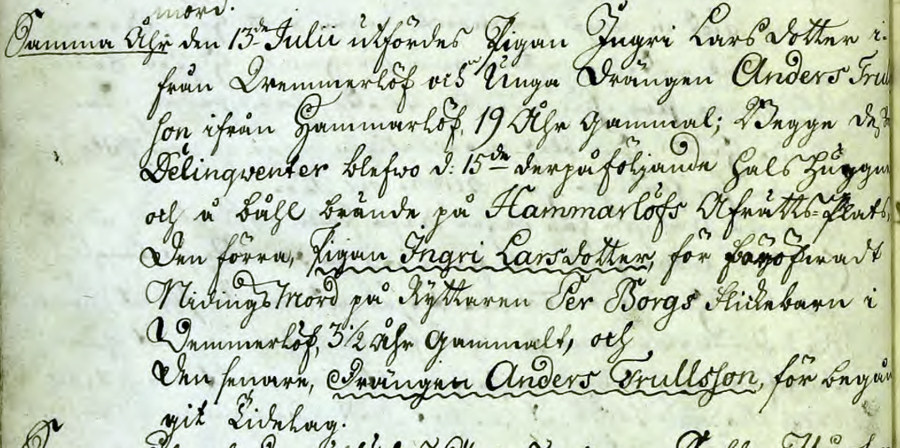 mord.
Samma Åhr den 13de Julii utfördes Pigan Ingri Lars dotter i-
från Wemmerlöf och Unga Drängen Anders Trull
son ifrån Hammarlöf, 19 Åhr gammal; Begge desse
Delinqventer blefwo d: 15de derpåföljande hals huggne
och å båhl brände på Hammarlöfs Afrätts-Plats,
Den förra, Pigan Ingri Larsdotter, för föröfwadt
Nidings Mord på Ryttaren Per Borgs Flickebarn i
Wemmerlöf, 3 1/2 Åhr gammalt, och
Den senare, Drängen Anders Trullsson, för begån
git Tidelag.